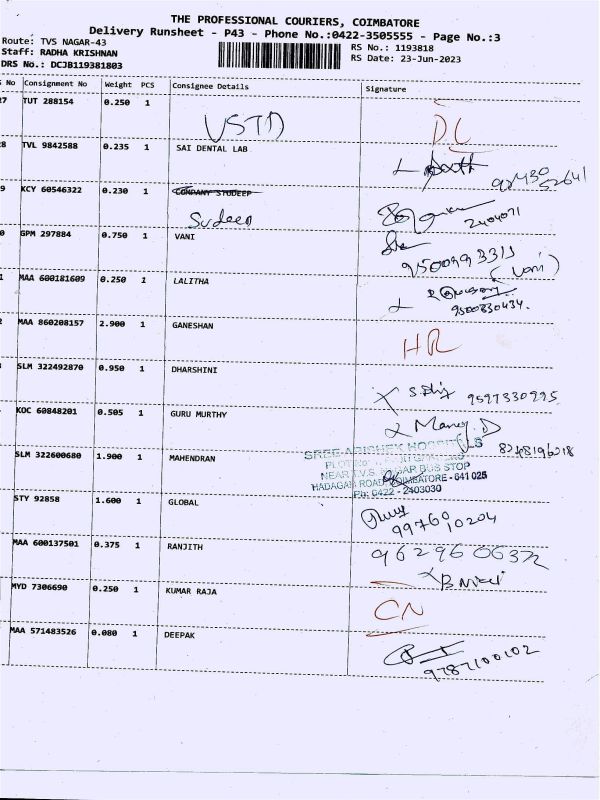 THE PROFESSIONAL COURIERS, COIMBATORE
Delivery Runsheet - P43 - Phone No.:0422-3505555 - Page No.:3
Route: TVS NAGAR-43
Staff: RADHA KRISHNAN
DRS No.: DCJB119381803
RS No.: 1193818
RS Date: 23-Jun-2023
No Consignment No Weight PCS Consignee Details Signature
7 TUT 288154 0.250 1 DL
8 TVL 9842588 0.235 1 SAI DENTAL LAB
92430
52641
9 KCY 60546322 0.230 1 COMPANY STUDEEP
Sudeep
2404071
0 GPM 297884 0.750 1 VANI
9500993311
(Vani)
MAA 600181609 0.250 1 LALITHA
9500830434.
MAA 860208157 2.900 1 GANESHAN HR
SLM 322492870 0.950 1 DHARSHINI
9597330995
KOC 60848201 0.505 1 GURU MURTHY
Manoj.D
8248196218
SLM 322600680 1.900 1 MAHENDRAN
SREE ABISHEK HOSPITALS
NEAR T.V.S. NAGAR BUS STOP
ROAD, COIMBATORE - 641 025
Ph: 0422 - 2403030
STY 92858 1.600 1 GLOBAL
9976010204
MAA 600137501 0.375 1 RANJITH
9629606372
MYD 7306690 0.250 1 KUMAR RAJA CN
MAA 571483526 0.080 1 DEEPAK
9787100102